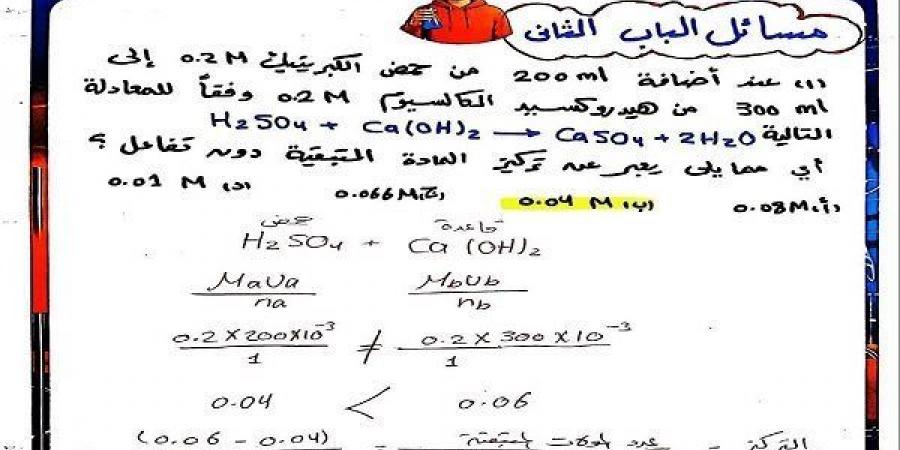 مسائل الباب الثانى
(١) عند أضافة 200 ml من حمض الكبريتيك 0.2 M إلى
300 ml من هيدروكسيد الكالسيوم 0.2 M وفقاً للمعادلة
التالية H2SO4 + Ca(OH)2 → CaSO4 + 2H2O
أي مما يلى يعبر عن تركيز المادة المتبقية دون تفاعل ؟
(أ) 0.08M (ب) 0.04 M (ج) 0.066M (د) 0.01 M
حمض قاعدة
H2SO4 + Ca(OH)2
MaVa/na MbVb/nb
0.2×200×10^-3/1 ≠ 0.2×300×10^-3/1
0.04 < 0.06
التركيز = عدد المولات المتبقية = (0.06 - 0.04)